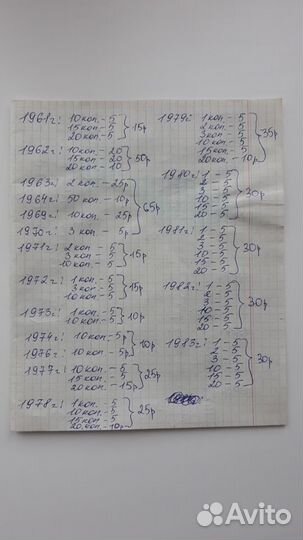 1961г: 10 коп - 5
15 коп - 5 } 15р
20 коп - 5
1962г: 10 коп - 20
15 коп - 20 } 50р
20 коп - 10
1963г: 2 коп - 25р
1964г: 50 коп - 10р } 65р
1969г: 10 коп. - 25р
1970г: 3 коп - 5р
1971г: 2 коп - 5
3 коп - 5 } 15р
10 коп - 5
1972г: 1 коп - 5
3 коп - 5 } 15р
10 коп - 5
1973г: 1 коп - 5
10 коп - 5 } 10р
1974г: 10 коп - 5р } 10р
1976г: 10 коп - 5р
1977г: 10 коп - 5
15 коп - 5 } 25р
20 коп - 15р
1978г: 1 коп. - 5
10 коп. - 5 } 25р
15 коп - 5
20 коп - 10р
1979г: 1 коп - 5
2 коп - 5
3 коп - 5 } 35р
10 коп - 5
15 коп. - 5
20 коп. - 10р
1980г: 1 - 5
2 - 5
3 - 5 } 30р
10 - 5
15 - 5
20 - 5
1981г: 1 - 5
2 - 5
3 - 5 } 30р
10 - 5
15 - 5
20 - 5
1982г: 1 - 5
2 - 5
3 - 5 } 30р
10 - 5
15 - 5
20 - 5
1983г: 1 - 5
2 - 5
3 - 5 } 30р
10 - 5
15 - 5
20 - 5
Avito